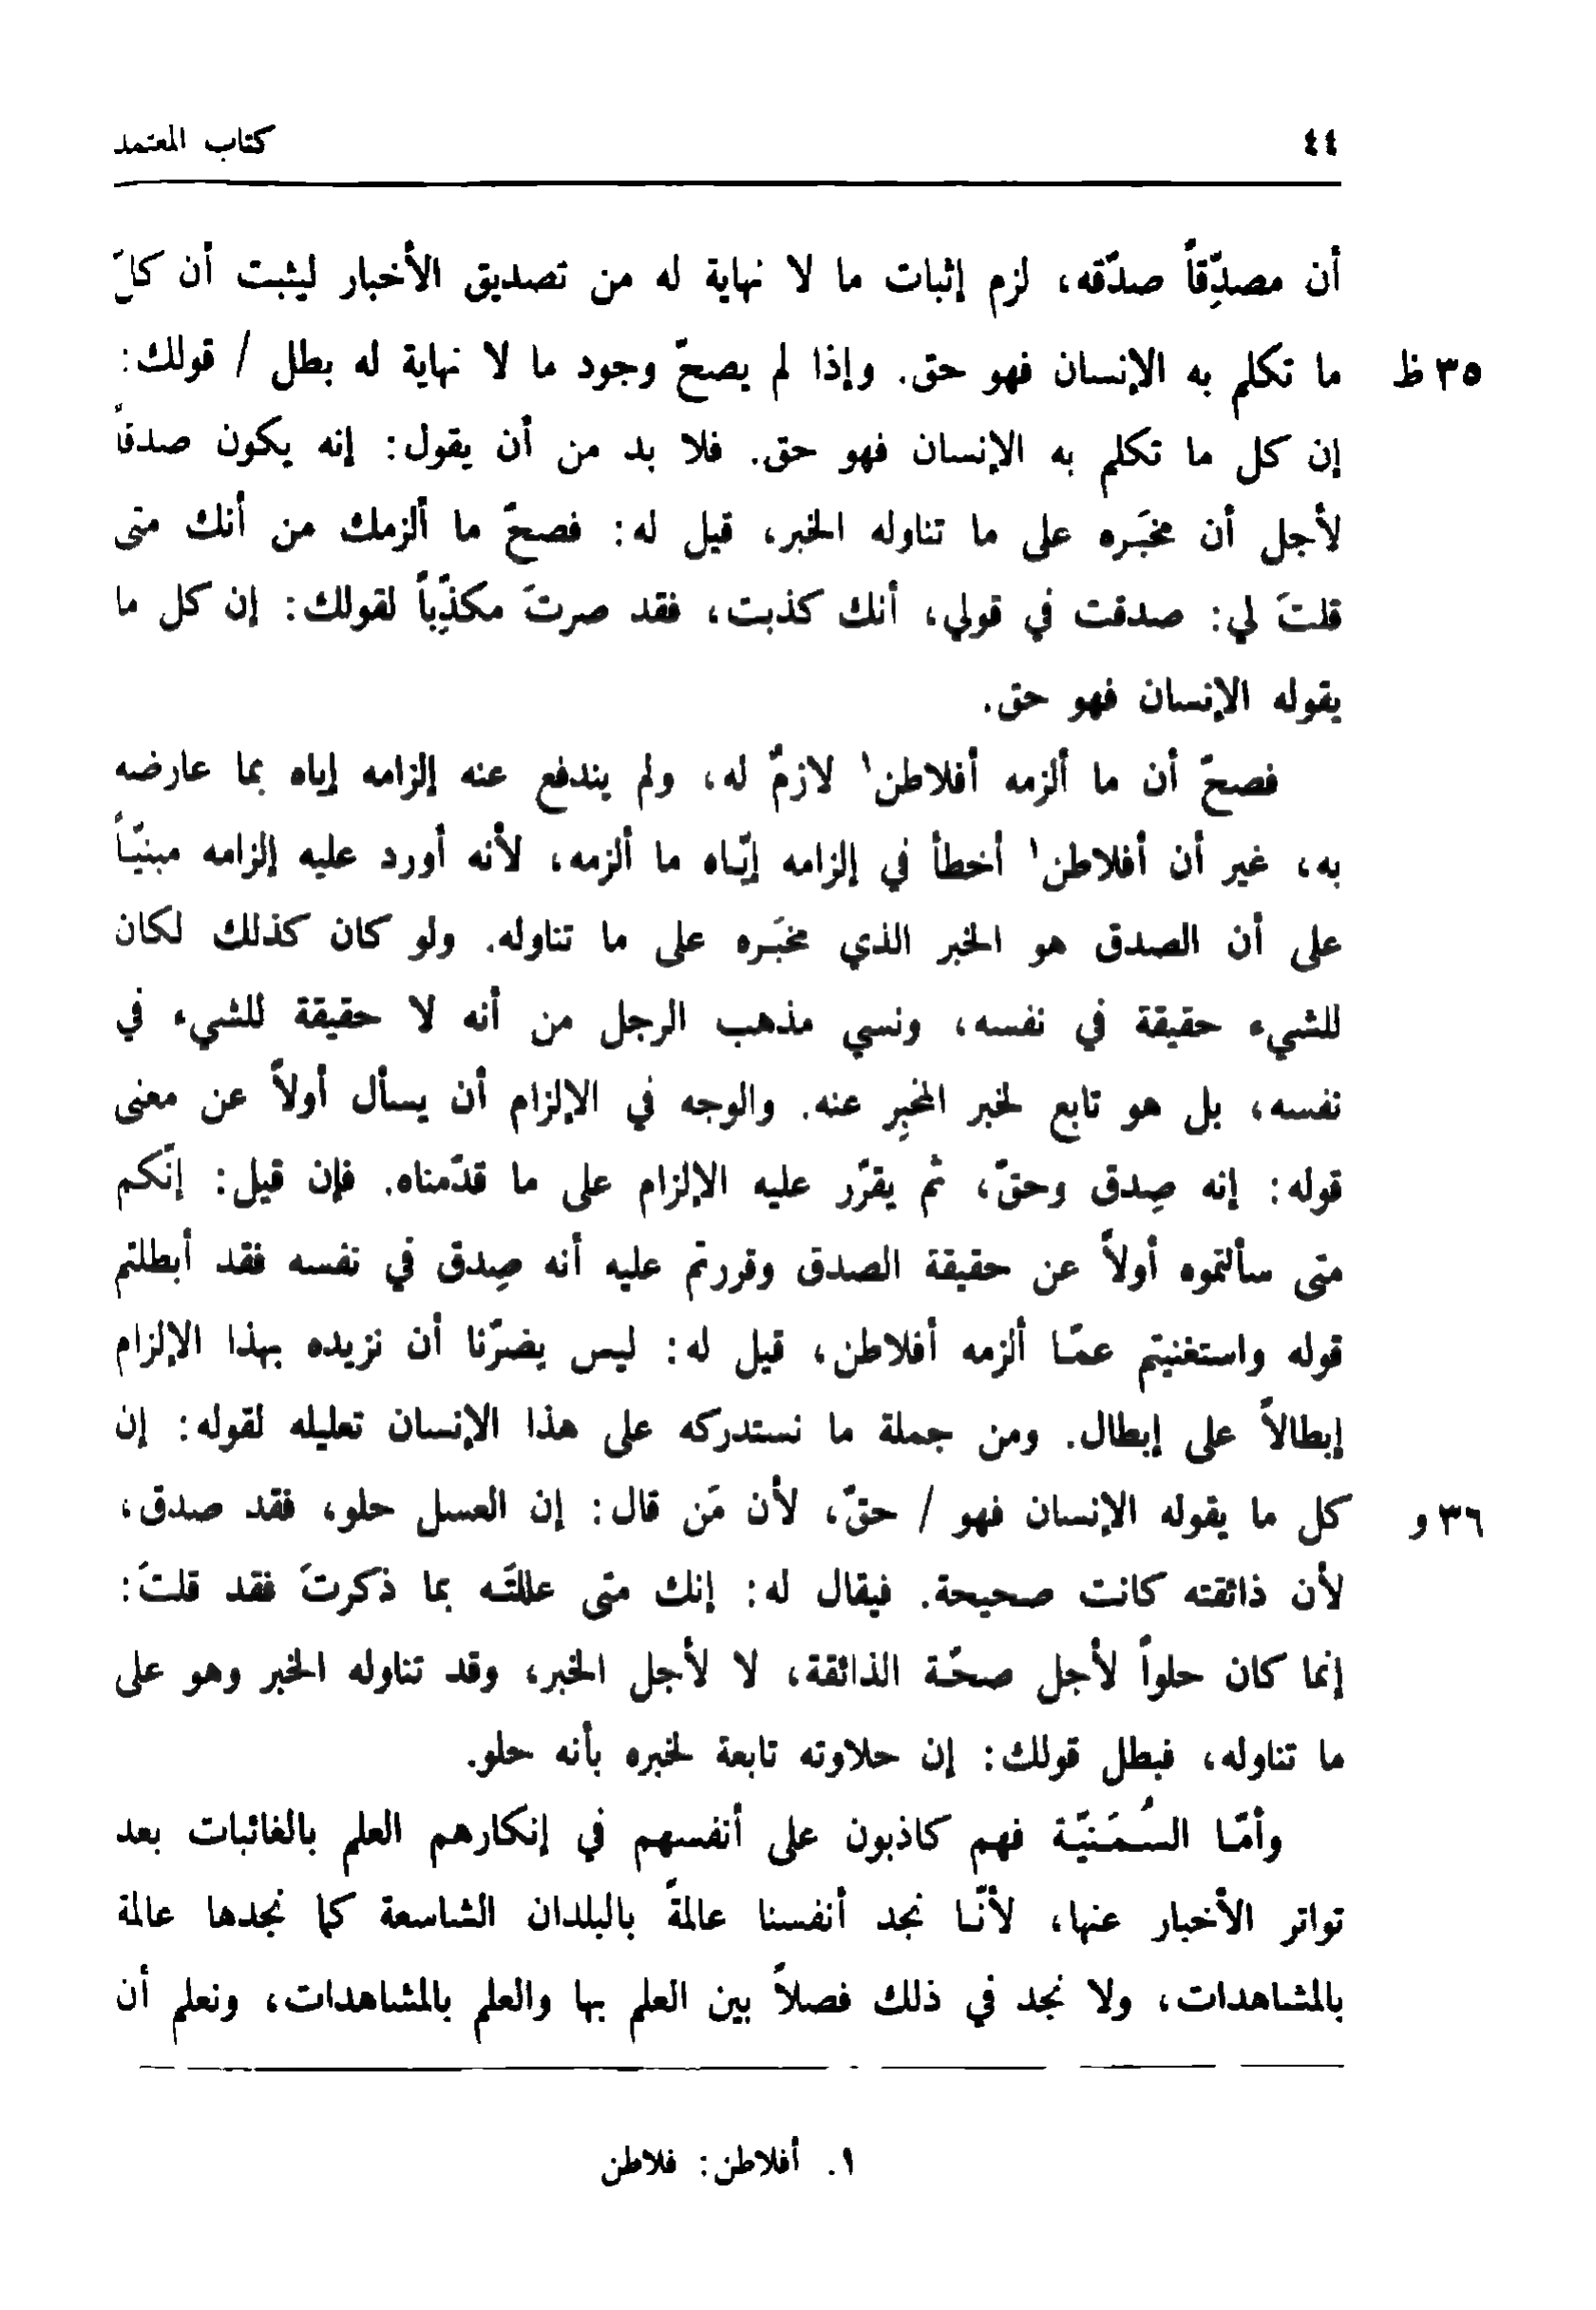 ٤٤ كتاب المعتمد
أن مصدِّقاً صدّقه، لزم إثبات ما لا نهاية له من تصديق الأخبار ليثبت أن كلّ
٣٥ ظ ما تكلم به الإنسان فهو حق. وإذا لم يصحّ وجود ما لا نهاية له بطل / قولك:
إن كل ما تكلم به الإنسان فهو حق. فلا بد من أن يقول: إنه يكون صدقاً
لأجل أن مخبَره على ما تناوله الخبر، قيل له: فصحّ ما ألزمك من أنك متى
قلتَ لي: صدقت في قولي، أنك كذبت، فقد صرتَ مكذِّباً لقولك: إن كل ما
يقوله الإنسان فهو حق.
فصحّ أن ما ألزمه أفلاطن١ لازمٌ له، ولم يندفع عنه إلزامه إياه بما عارضه
به، غير أن أفلاطن١ أخطأ في إلزامه إيّاه ما ألزمه، لأنه أورد عليه إلزامه مبنيّاً
على أن الصدق هو الخبر الذي مخبَره على ما تناوله. ولو كان كذلك لكان
للشيء حقيقة في نفسه، ونسي مذهب الرجل من أنه لا حقيقة للشيء في
نفسه، بل هو تابع لخبر المخبِر عنه. والوجه في الإلزام أن يسأل أولاً عن معنى
قوله: إنه صِدق وحقّ، ثم يقرّر عليه الإلزام على ما قدّمناه. فإن قيل: إنّكم
متى سألتموه أولاً عن حقيقة الصدق وقررتم عليه أنه صِدق في نفسه فقد أبطلتم
قوله واستغنيتم عمّا ألزمه أفلاطن، قيل له: ليس يضرّنا أن نزيده بهذا الإلزام
إبطالاً على إبطال. ومن جملة ما نستدركه على هذا الإنسان تعليله لقوله: إن
٣٦ و كل ما يقوله الإنسان فهو / حقّ، لأن مَن قال: إن العسل حلو، فقد صدق،
لأن ذائقته كانت صحيحة. فيقال له: إنك متى عللتَه بما ذكرتَ فقد قلتَ:
إنما كان حلواً لأجل صحّة الذائقة، لا لأجل الخبر، وقد تناوله الخبر وهو على
ما تناوله، فبطل قولك: إن حلاوته تابعة لخبره بأنه حلو.
وأمّا السُمَنيّة فهم كاذبون على أنفسهم في إنكارهم العلم بالغائبات بعد
تواتر الأخبار عنها، لأنّا نجد أنفسنا عالمةً بالبلدان الشاسعة كما نجدها عالمة
بالمشاهدات، ولا نجد في ذلك فصلاً بين العلم بها والعلم بالمشاهدات، ونعلم أن
١. أفلاطن: فلاطن